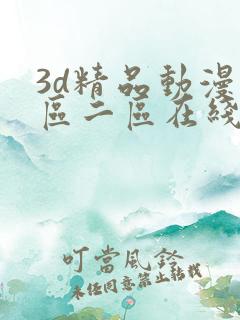 3d精品動漫
區二區在綫
叮當風鈴
未經同意禁止轉載